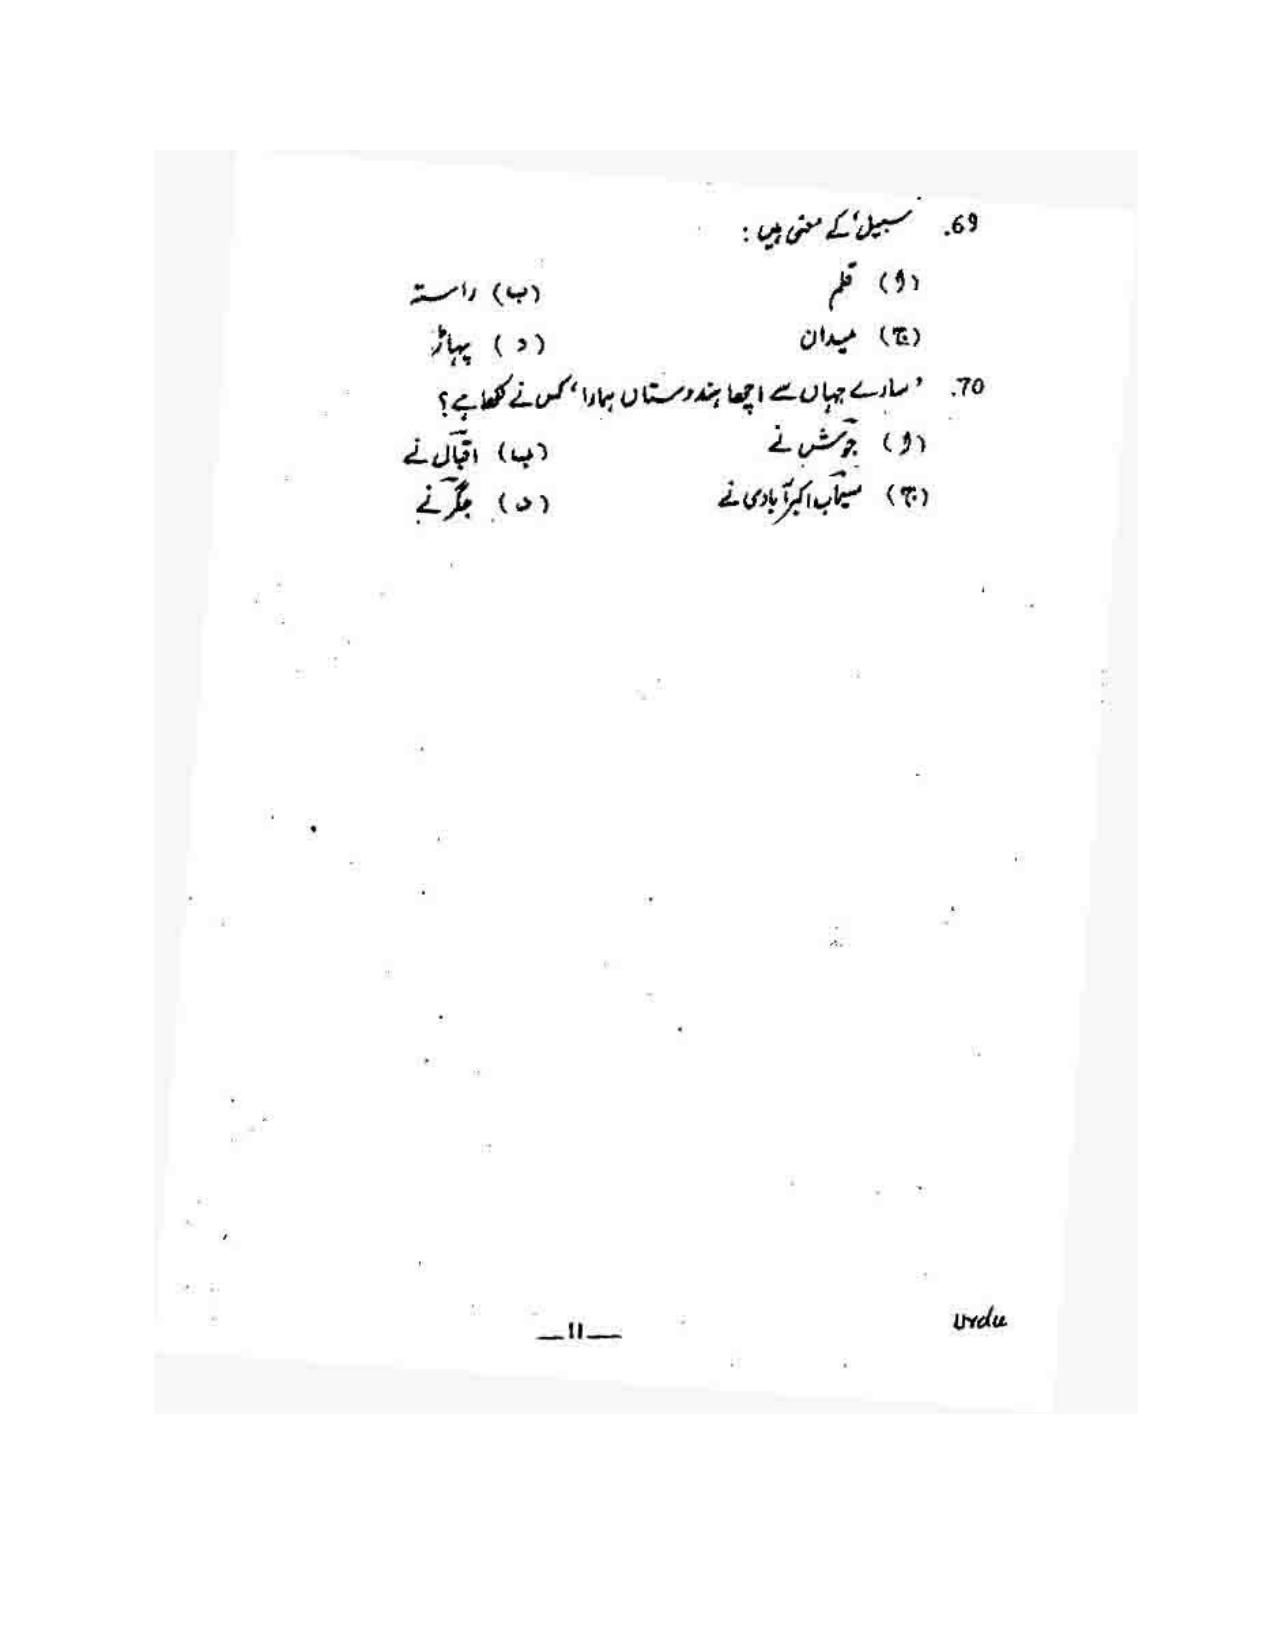 69. 'سبیل' کے معنی ہیں :
(ا) قلم (ب) راستہ
(ج) میدان (د) پہاڑ
70. 'سارے جہاں سے اچھا ہندوستاں ہمارا' کس نے لکھا ہے؟
(ا) جوشؔ نے (ب) اقبالؔ نے
(ج) سیمابؔ اکبرآبادی نے (د) جگرؔ نے
—11—
Urdu